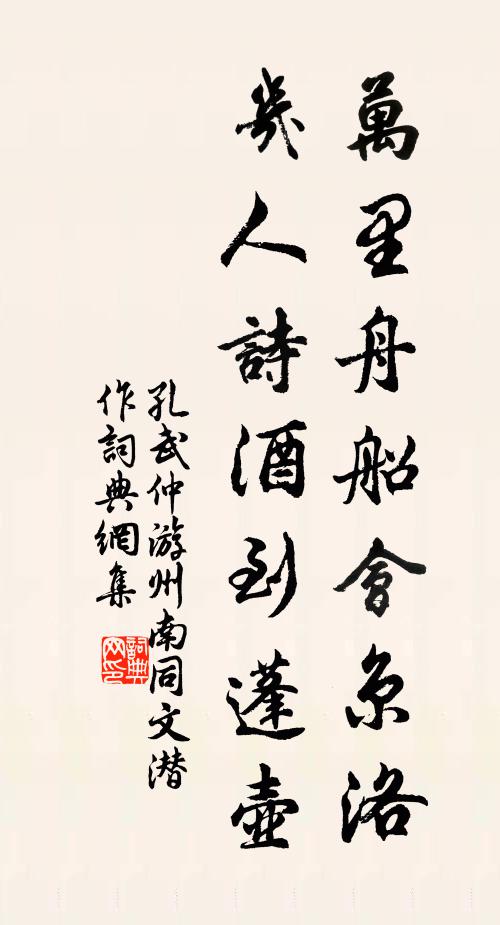 萬里舟船會京洛
幾人詩酒到蓬壺
孔武仲游州南同文潛
作詞典網集
詞典網印